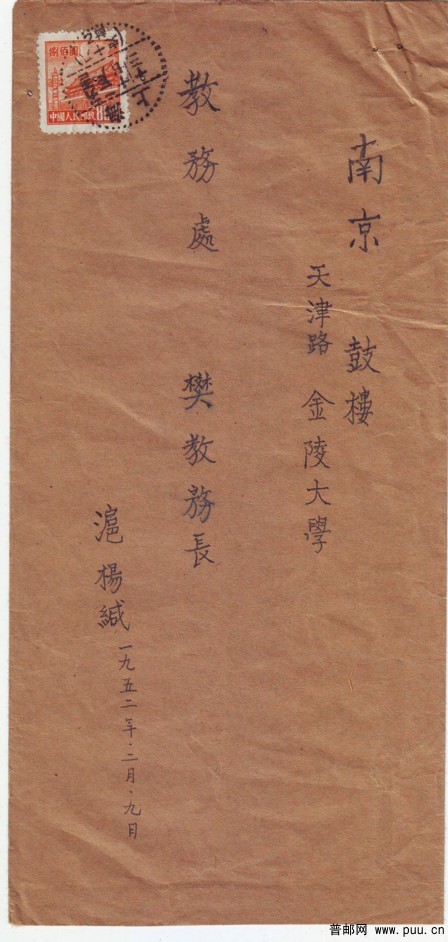 南京 鼓樓
天津路 金陵大學
教務處 樊教務長
滬楊緘 一九五二年·二月·九日
捌佰圓
中國人民郵政
普邮网 www.puu.cn